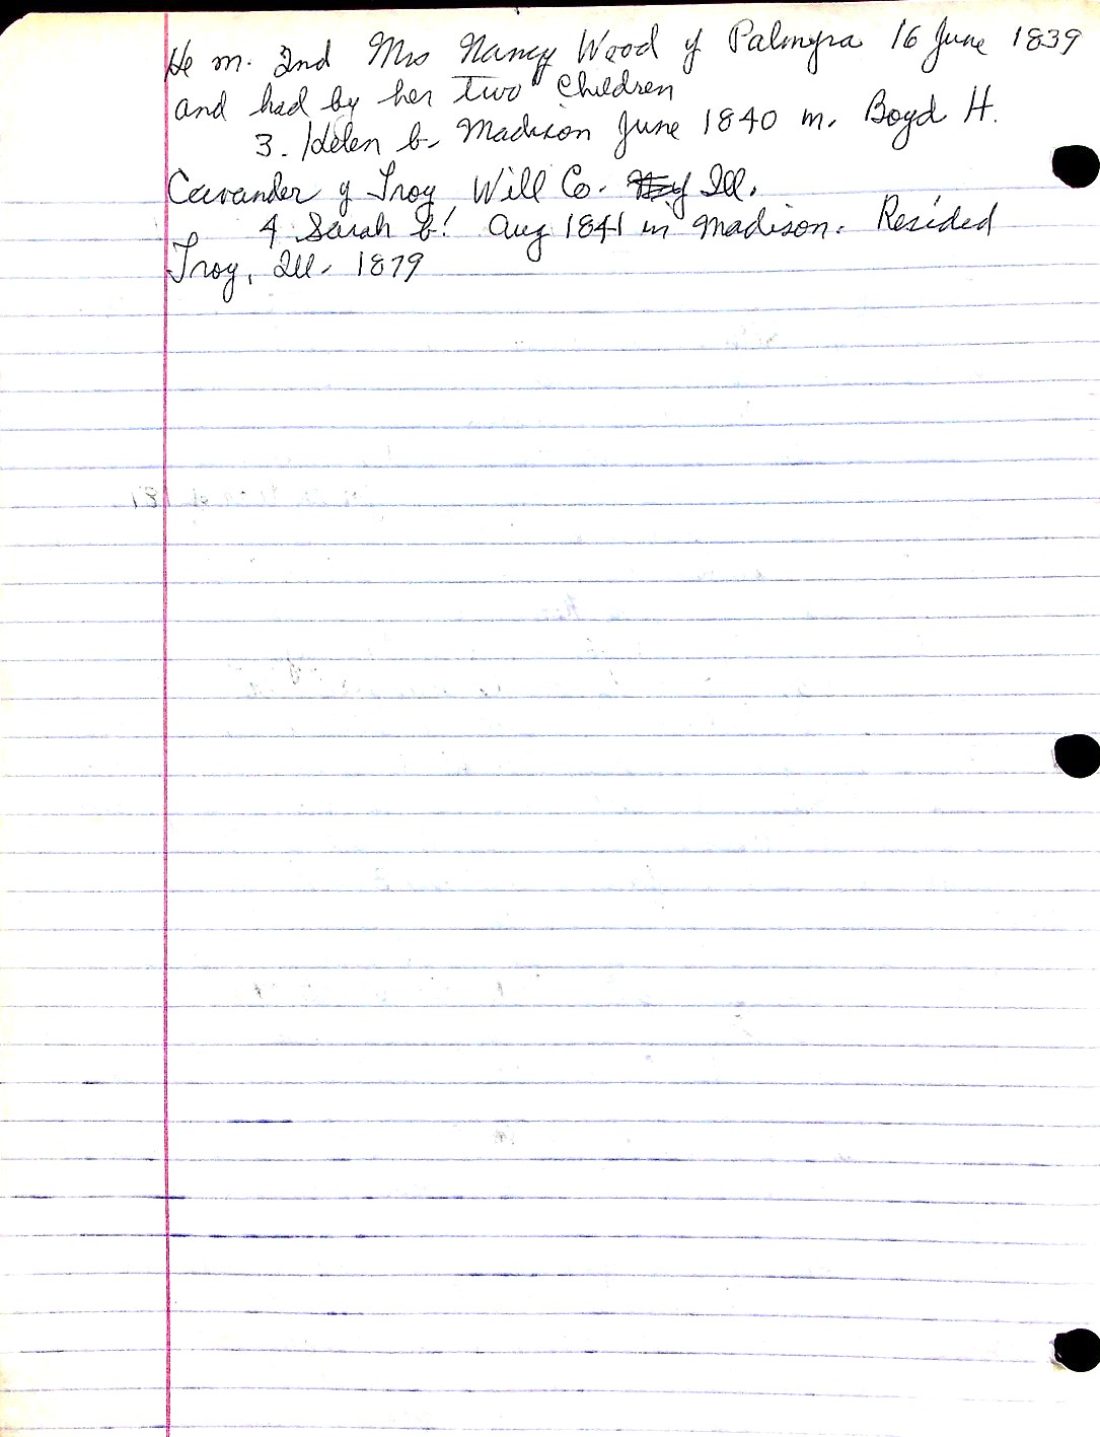 He m. 2nd Mrs Nancy Wood of Palmyra 16 June 1839
and had by her two children
3. Helen b. Madison June 1840 m. Boyd H.
Cavander of Troy Will Co. Ill.
4 Sarah b. Aug 1841 in Madison. Resided
Troy, Ill. 1879